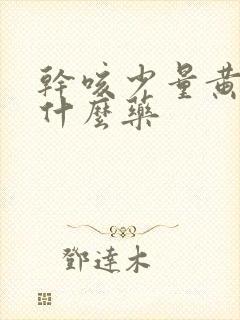 幹咳少量黃
什麼藥
鄧達木